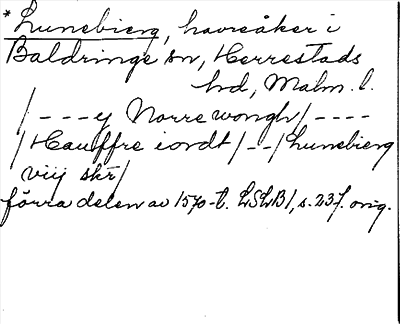 * Lunebierg, havreåker i
Baldringe sn, Herrestads
hd, Malm. l.
/---y Norre wongh/----
/Hauffre iordt/--/Lunebierg
viij skr/
förra delen av 1570-t. LSLB1, s. 237. orig.